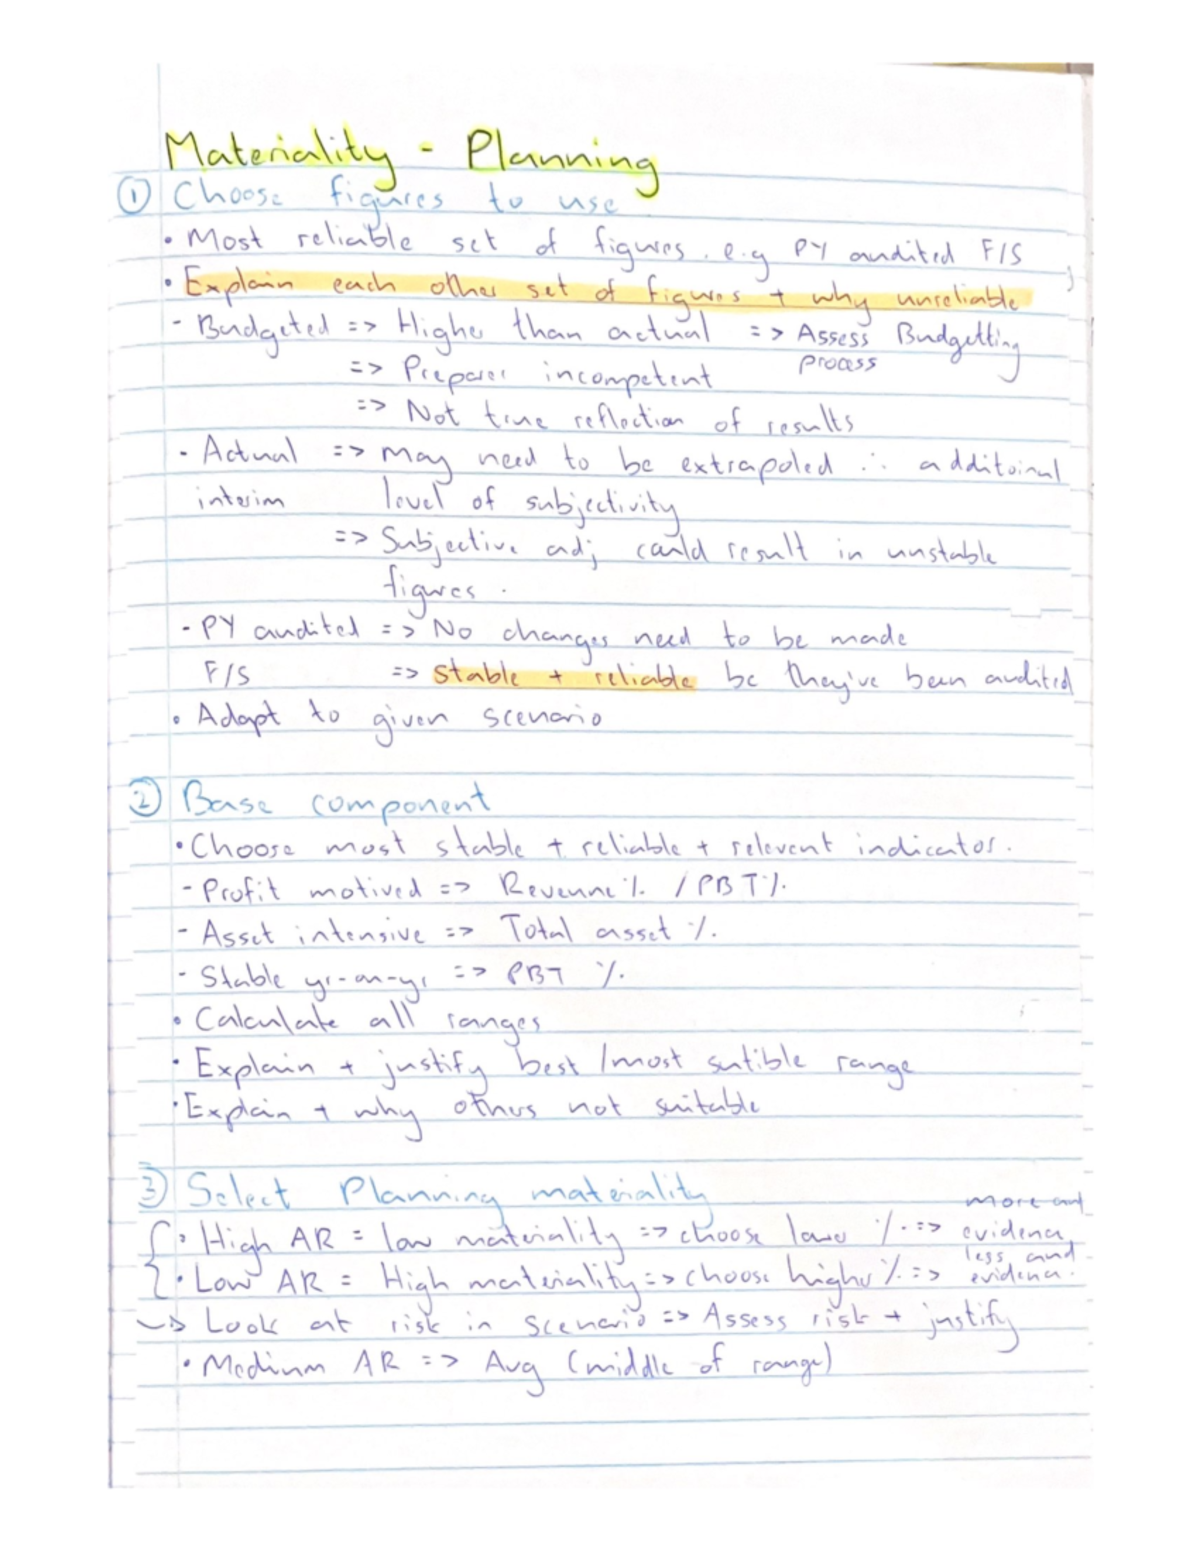 Materiality - Planning
① Choose figures to use
• Most reliable set of figures. e.g PY audited F/S
• Explain each other set of figures + why unreliable
- Budgeted => Higher than actual => Assess Budgetting process
=> Preparer incompetent
=> Not true reflection of results
- Actual => may need to be extrapoled ∴ additoinal
interim level of subjectivity
=> Subjective adj could result in unstable
figures.
- PY audited => No changes need to be made
F/S => stable + reliable bc they've been audited
• Adapt to given scenario
② Base component
• Choose most stable + reliable + relevent indicator.
- Profit motived => Revenue % / PBT %
- Asset intensive => Total asset %.
- Stable yr-on-yr => PBT %.
• Calculate all ranges
• Explain + justify best /most sutible range
• Explain + why others not suitable
③ Select Planning materiality
• High AR = low materiality => choose lower % => more aud evidence
• Low AR = High materiality => choose higher % => less aud evidence.
↳ Look at risk in scenario => Assess risk + justify
• Medium AR => Avg (middle of range)